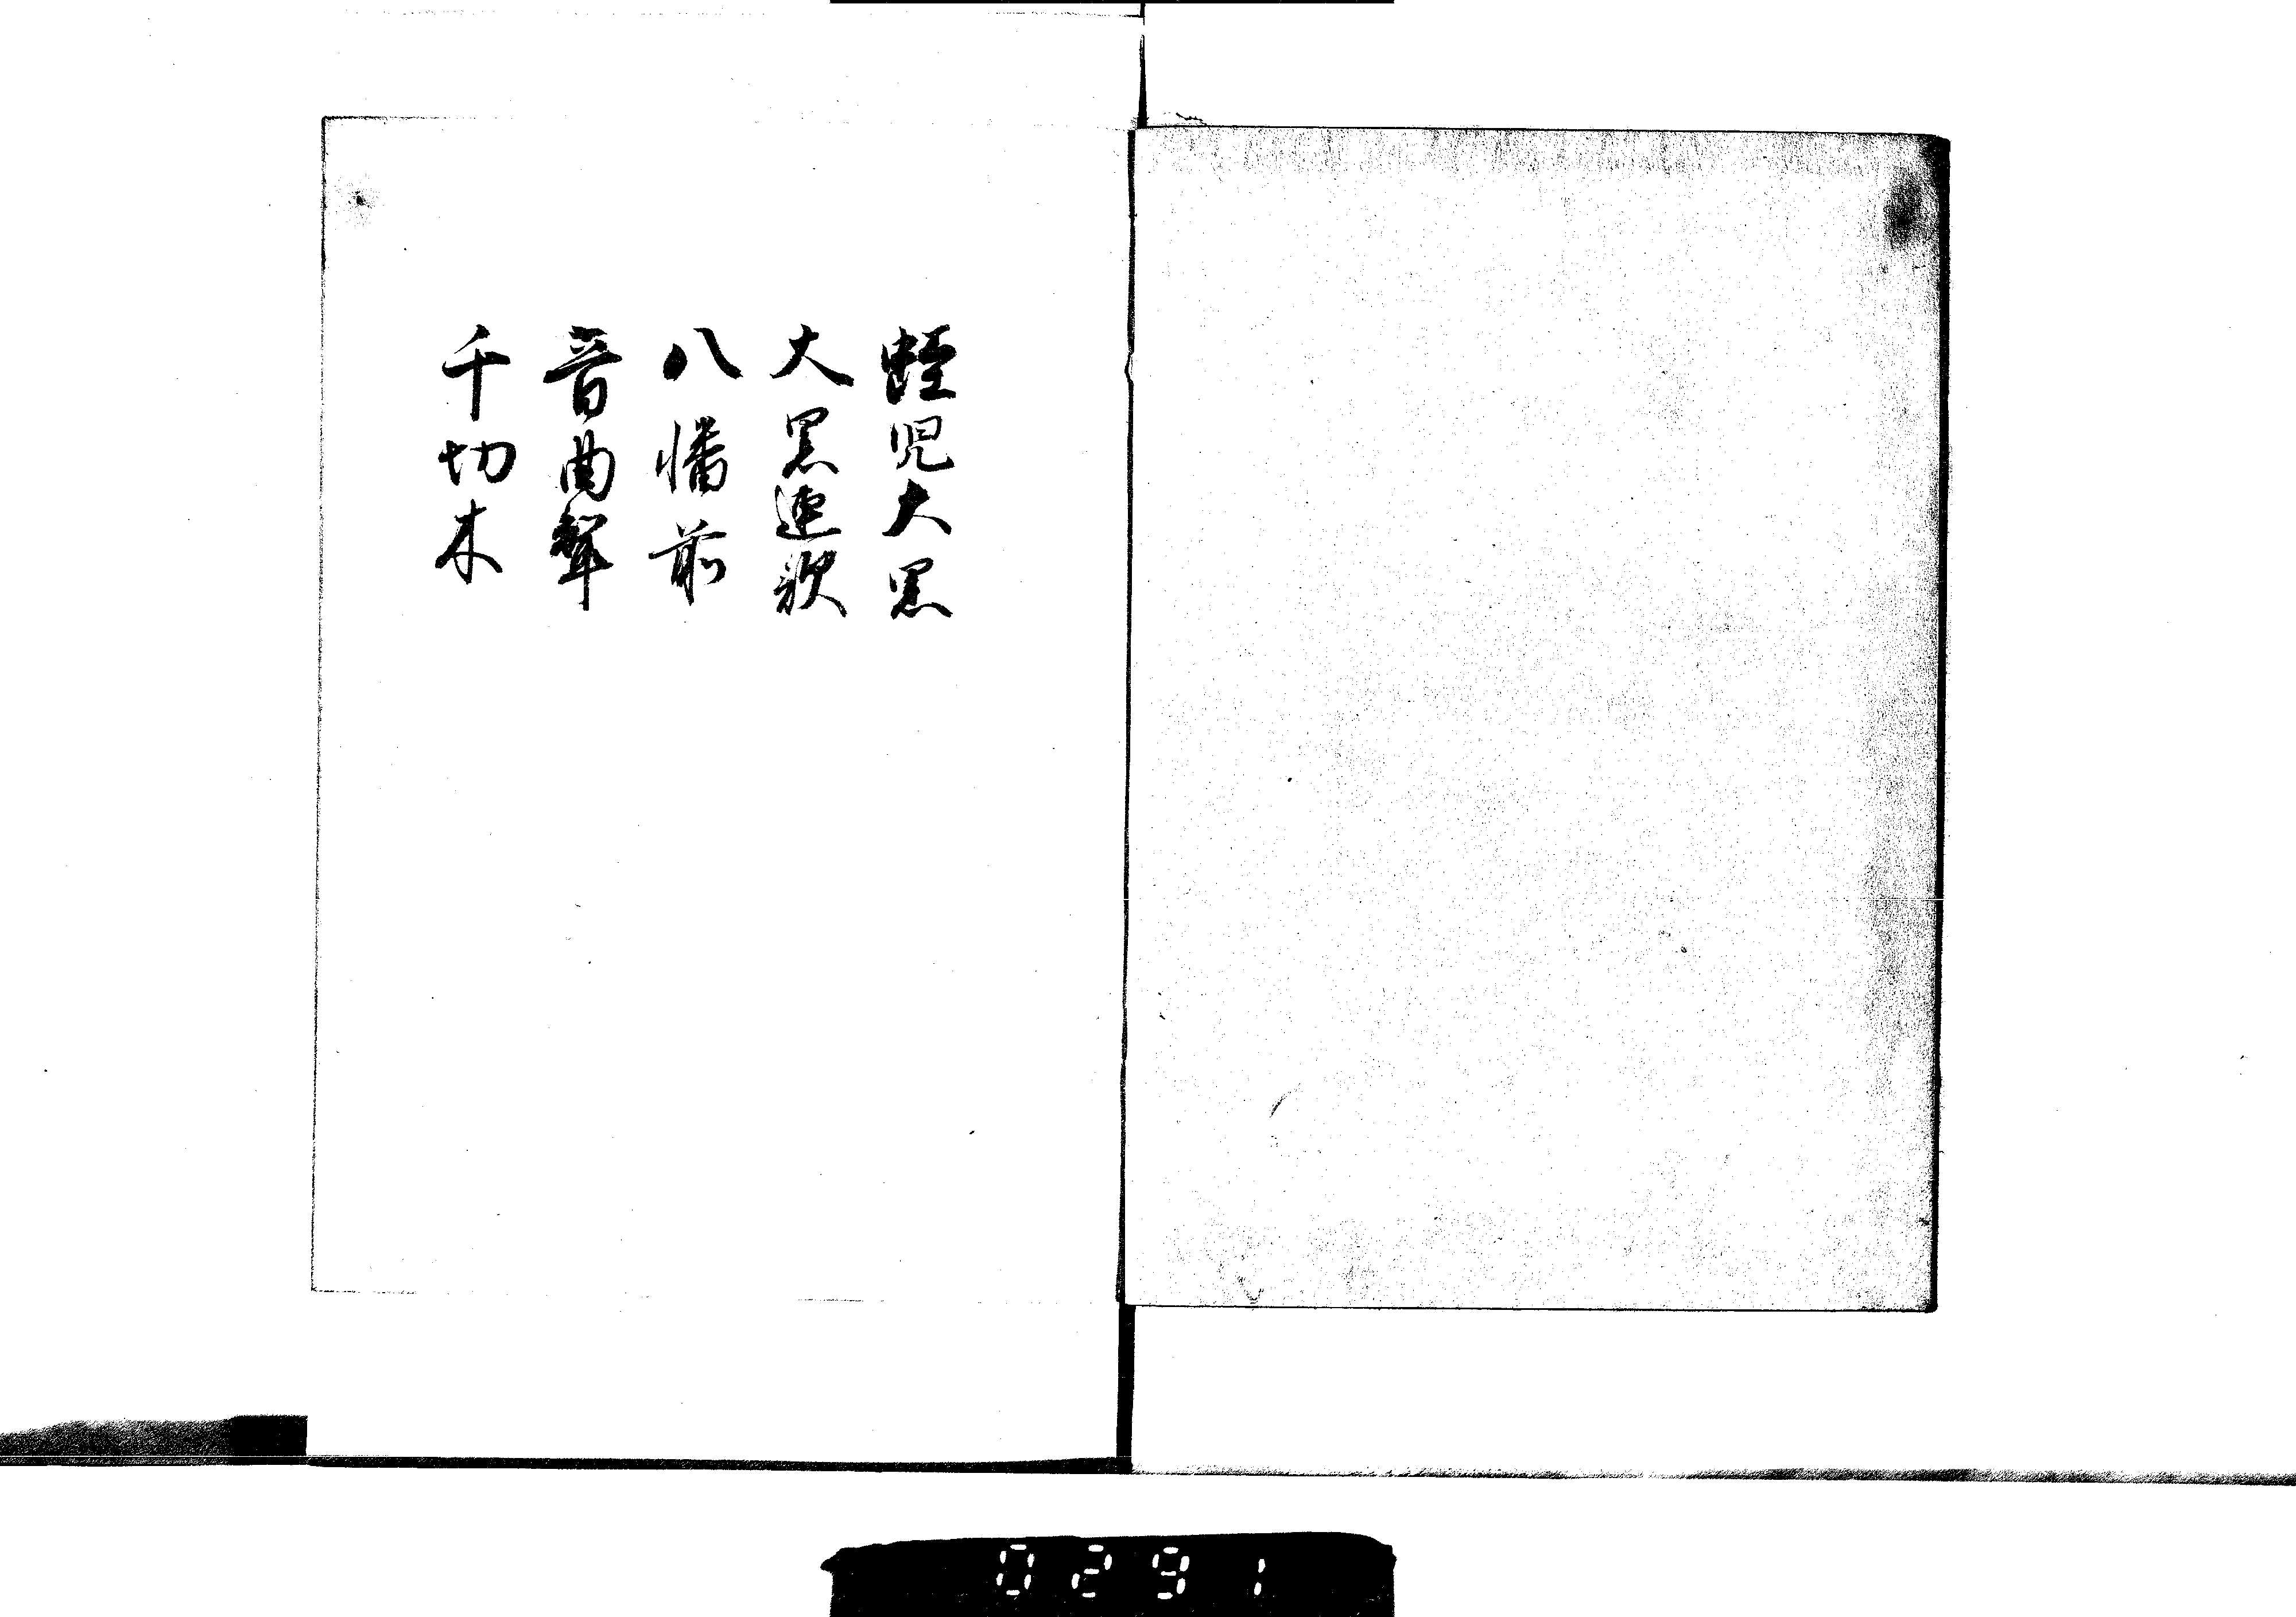 蛭児大黒
大黒連歌
八幡前
音曲聟
千切木
0291